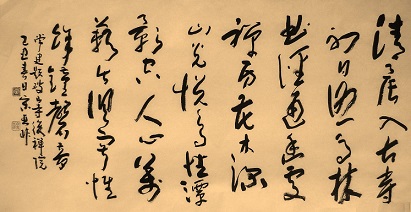 清晨入古寺
初日照高林
曲徑通幽處
禪房花木深
山光悦鳥性潭
影空人心萬
籟此俱寂惟
餘鐘磬音
常建題破山寺後禅院
己丑春日